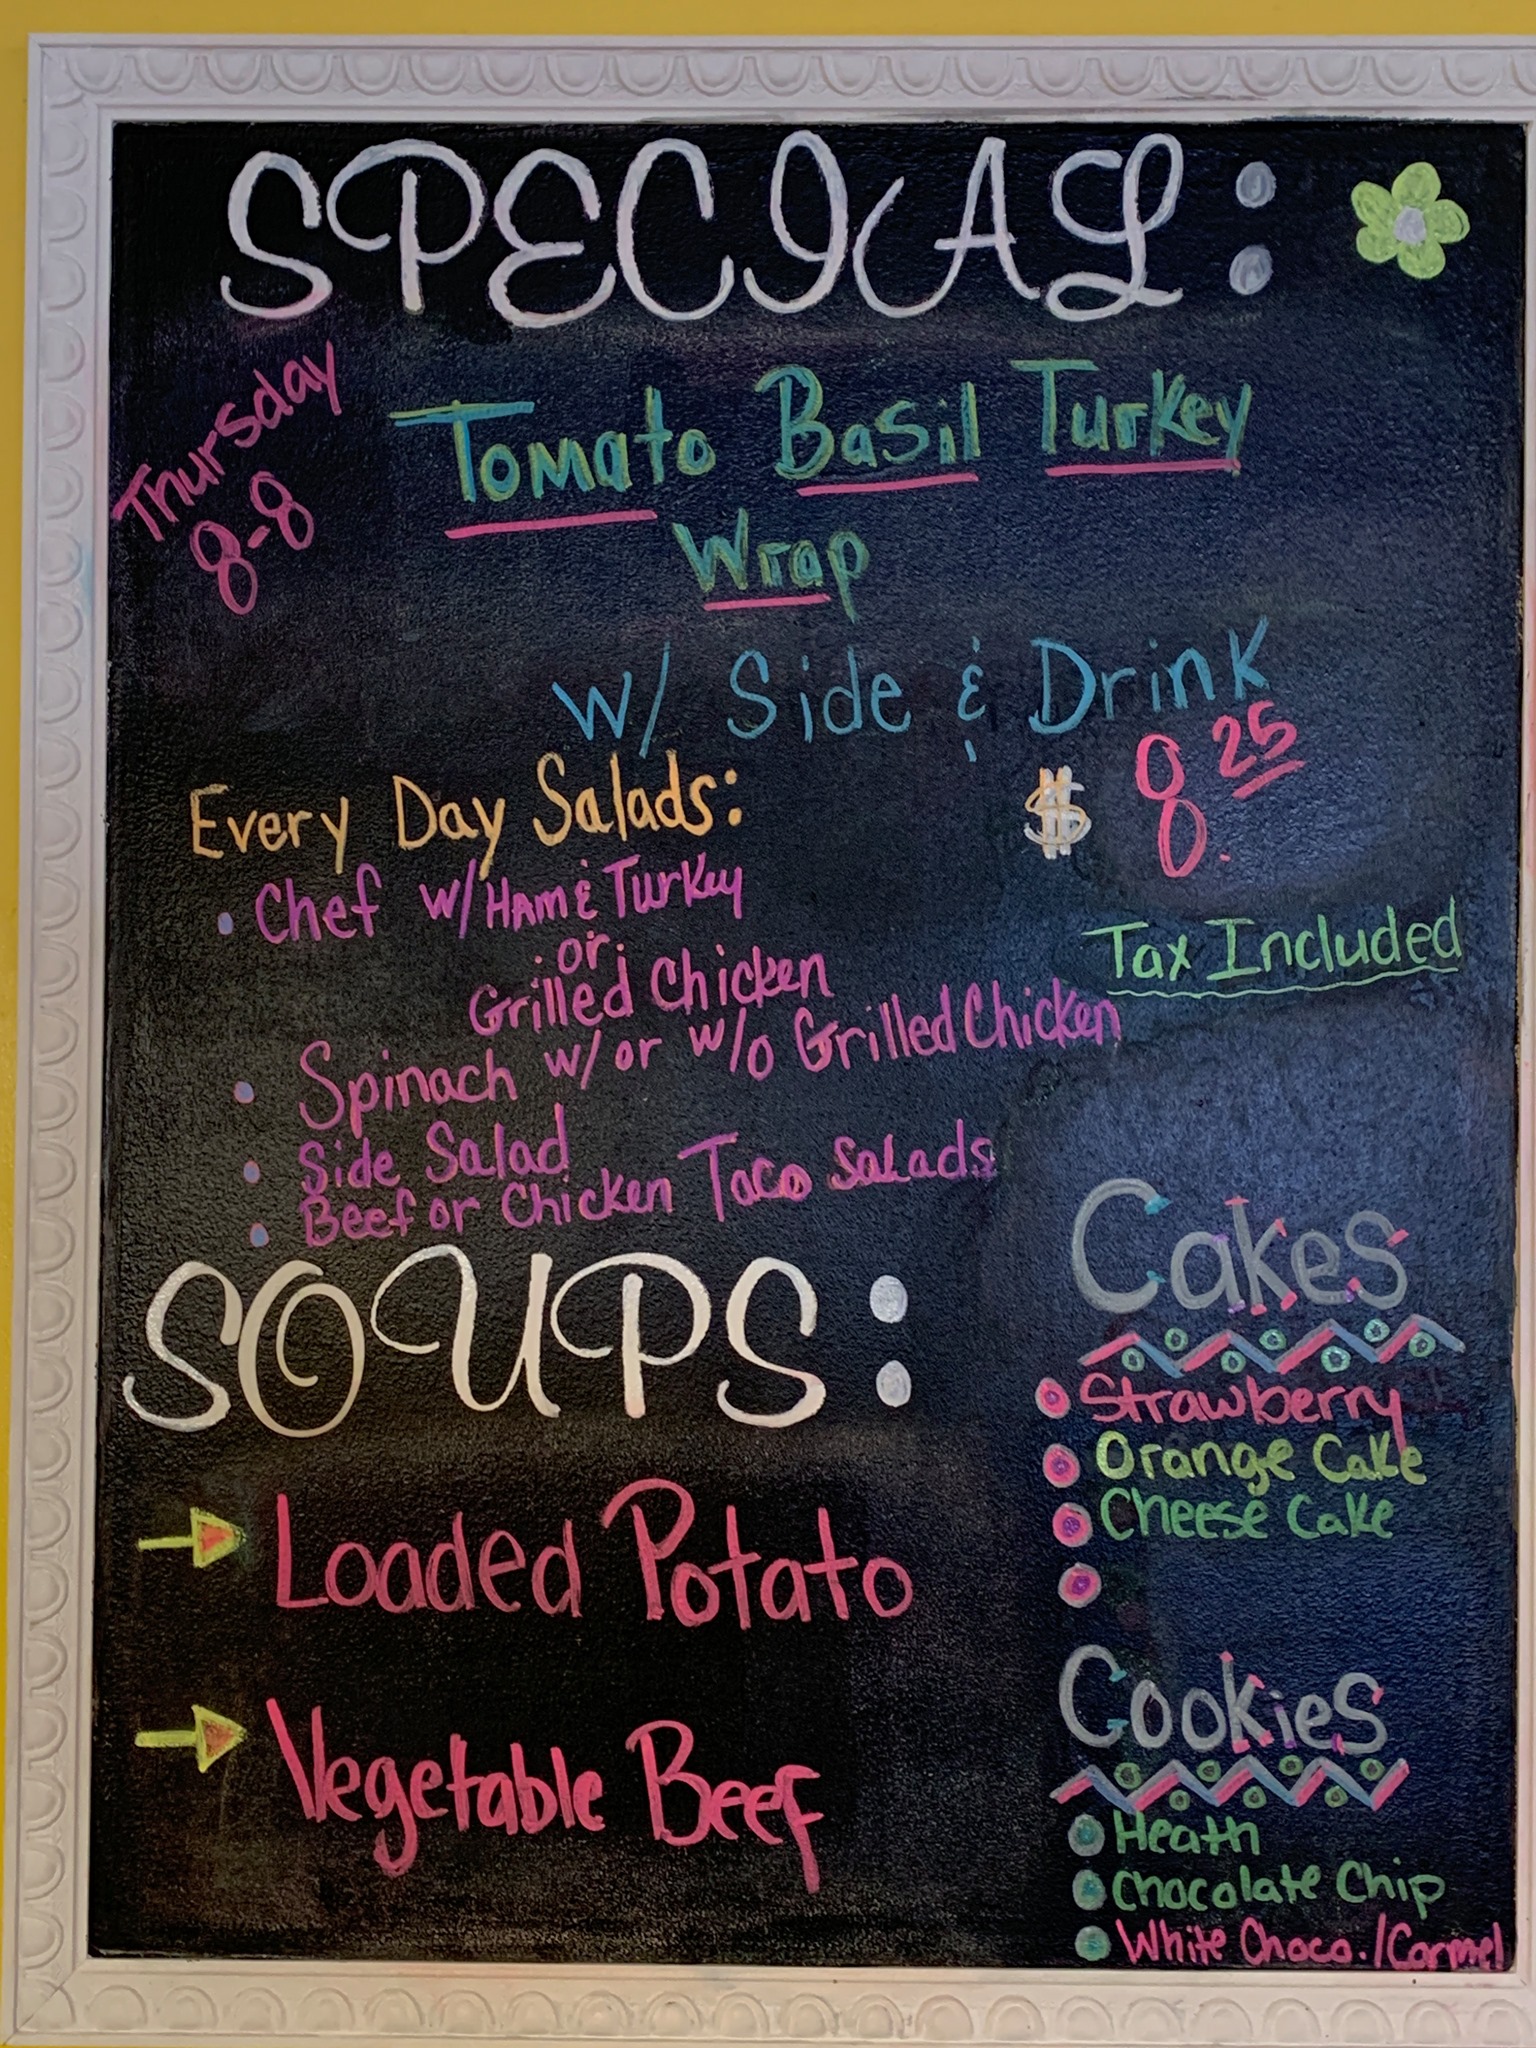 SPECIAL:
Thursday
8-8
Tomato Basil Turkey
Wrap
w/ Side & Drink
$ 8.25
Tax Included
Every Day Salads:
• Chef w/ Ham & Turkey
or
Grilled Chicken
• Spinach w/ or w/o Grilled Chicken
• Side Salad
• Beef or Chicken Taco Salads
SOUPS:
Loaded Potato
Vegetable Beef
Cakes
Strawberry
Orange Cake
Cheese Cake
Cookies
Heath
Chocolate Chip
White Choco./Carmel